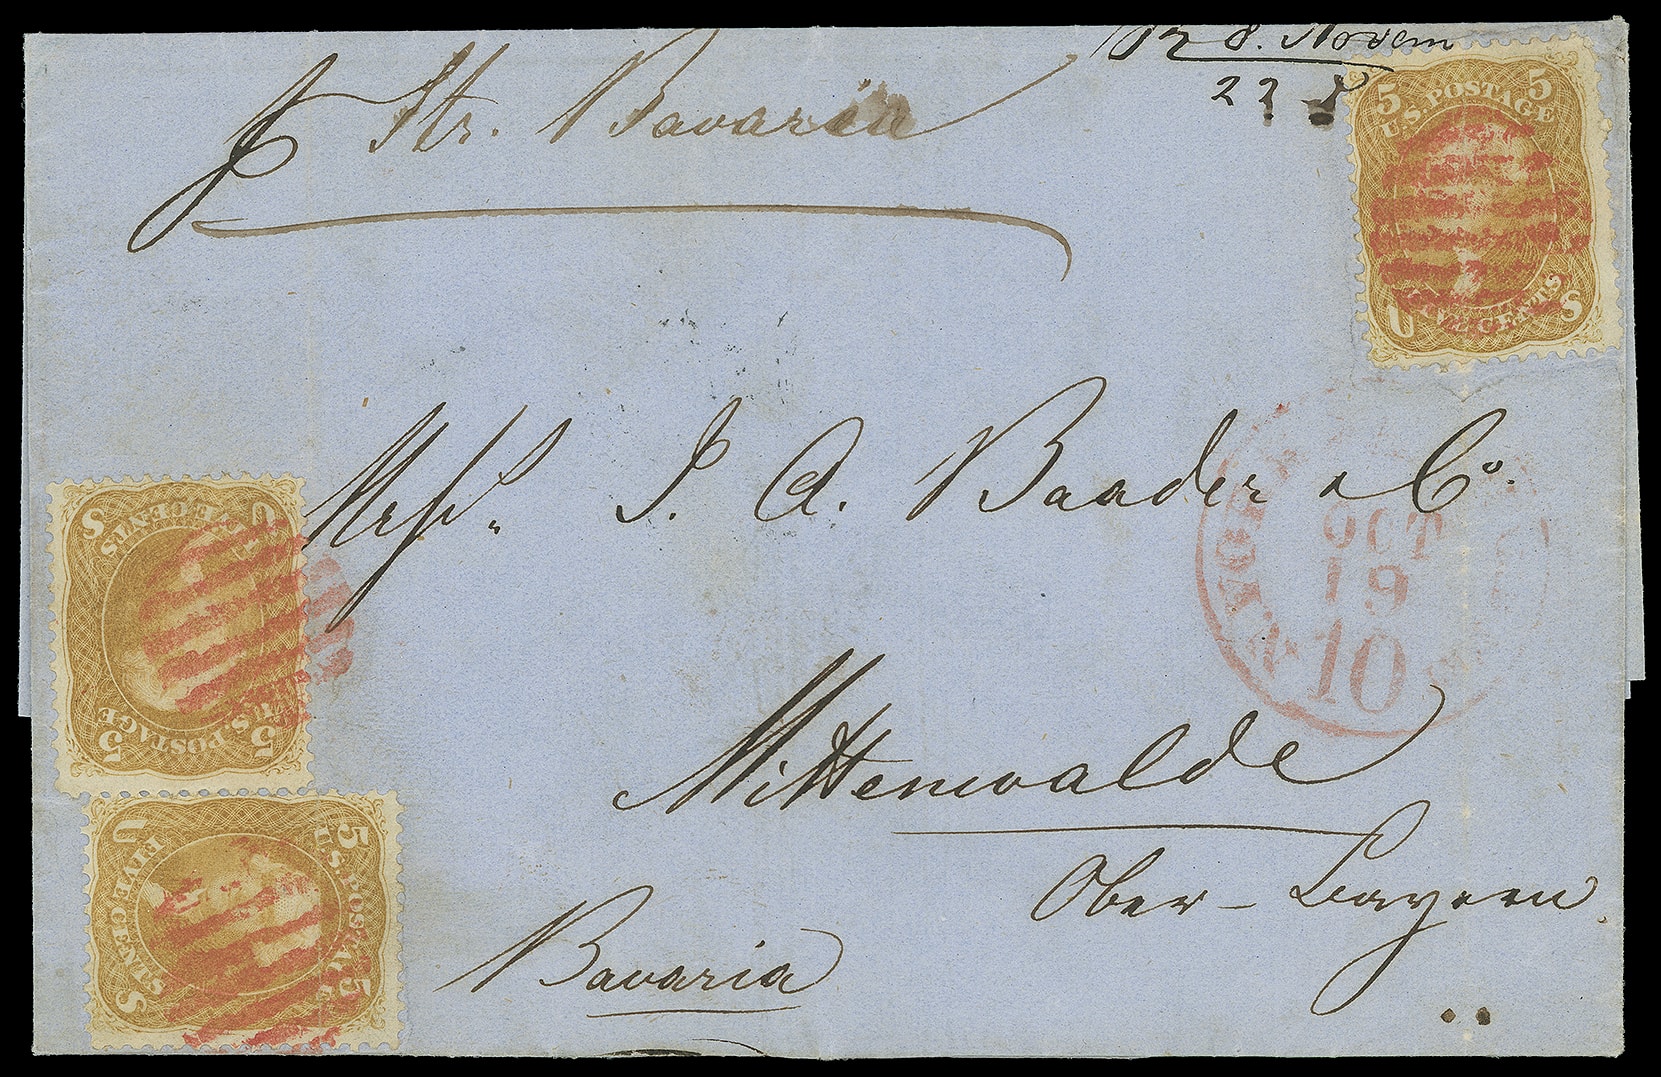 8. Novem
22
pr Str. Bavaria
5 5
U.S. POSTAGE
FIVE CENTS
U S
Messrs. J. A. Baader & Co.
N. YORK
OCT
19
10
5 5
U.S. POSTAGE
FIVE CENTS
U S
Mittenwalde
Ober-Bayern
5 5
U.S. POSTAGE
FIVE CENTS
U S
Bavaria